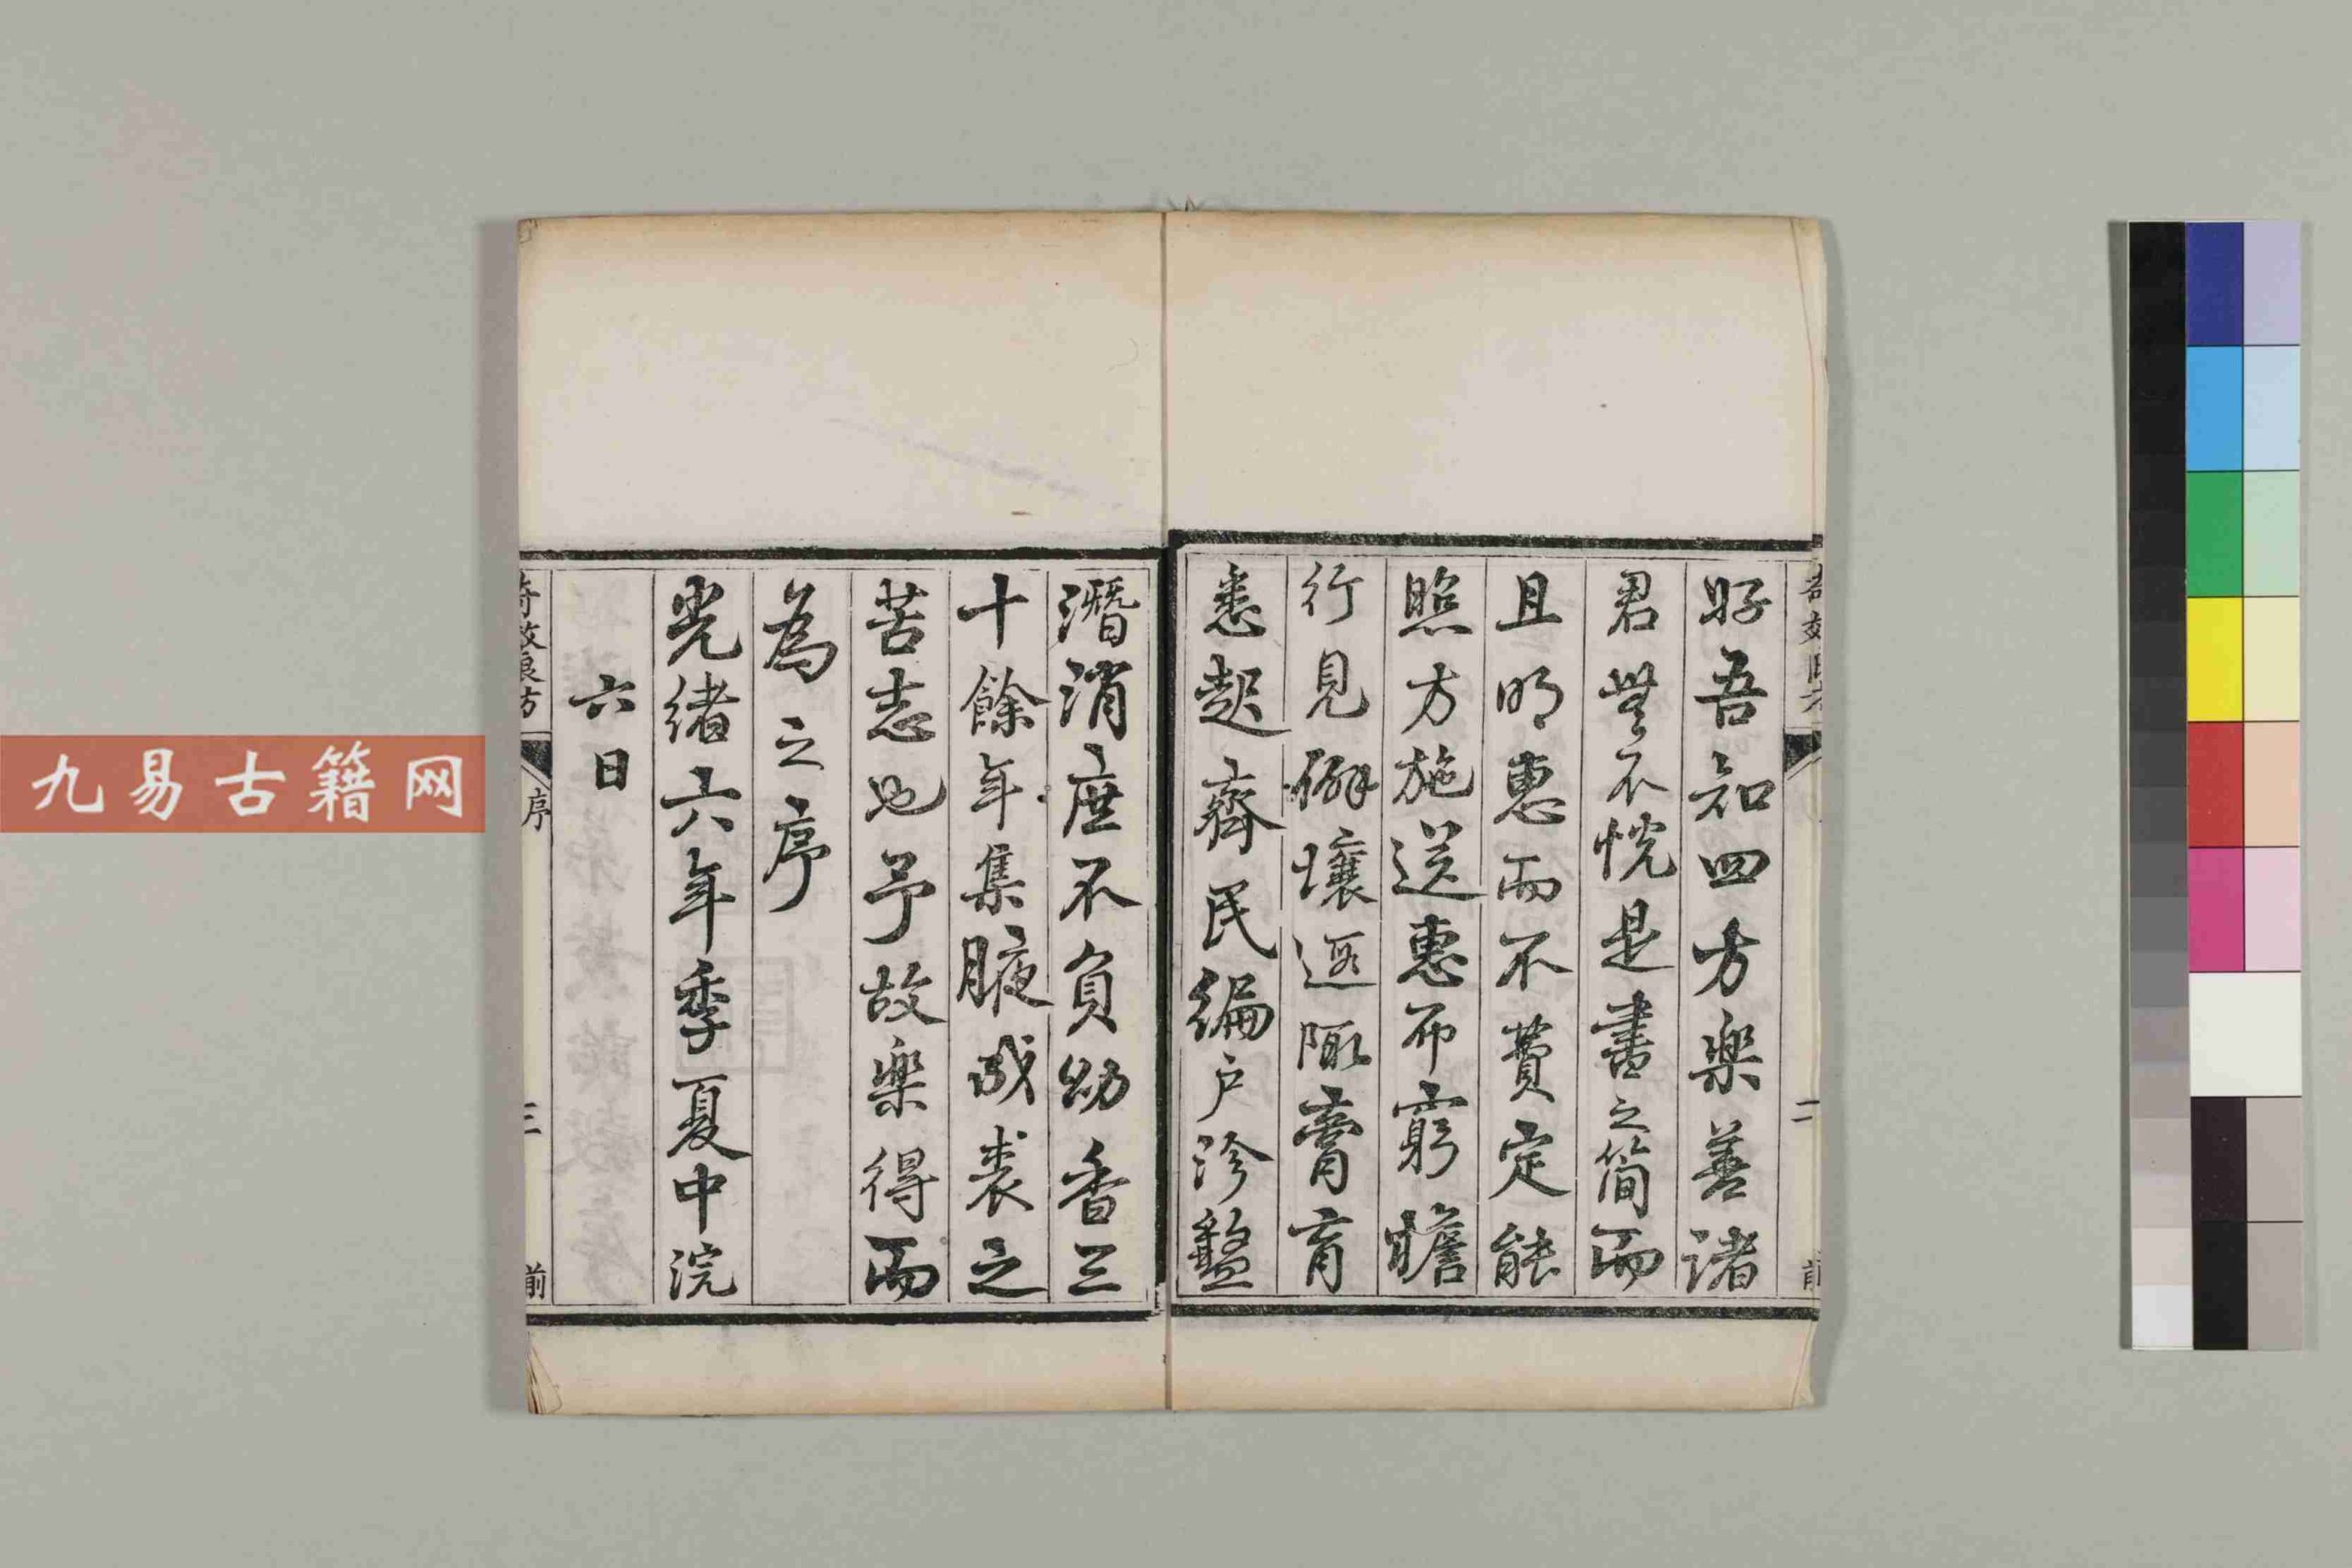 好吾知四方樂善諸
君無不恱是書之簡而
且明惠而不費定能
照方施送惠布窮簷
行見僻壤遐陬膏肓
悉起齊民編户沴盭
潛消庶不負幼香三
十餘年集腋成裘之
苦志也予故樂得而
為之序
光緒六年季夏中浣
六日
奇效良方
序
三
前
二
九易古籍网